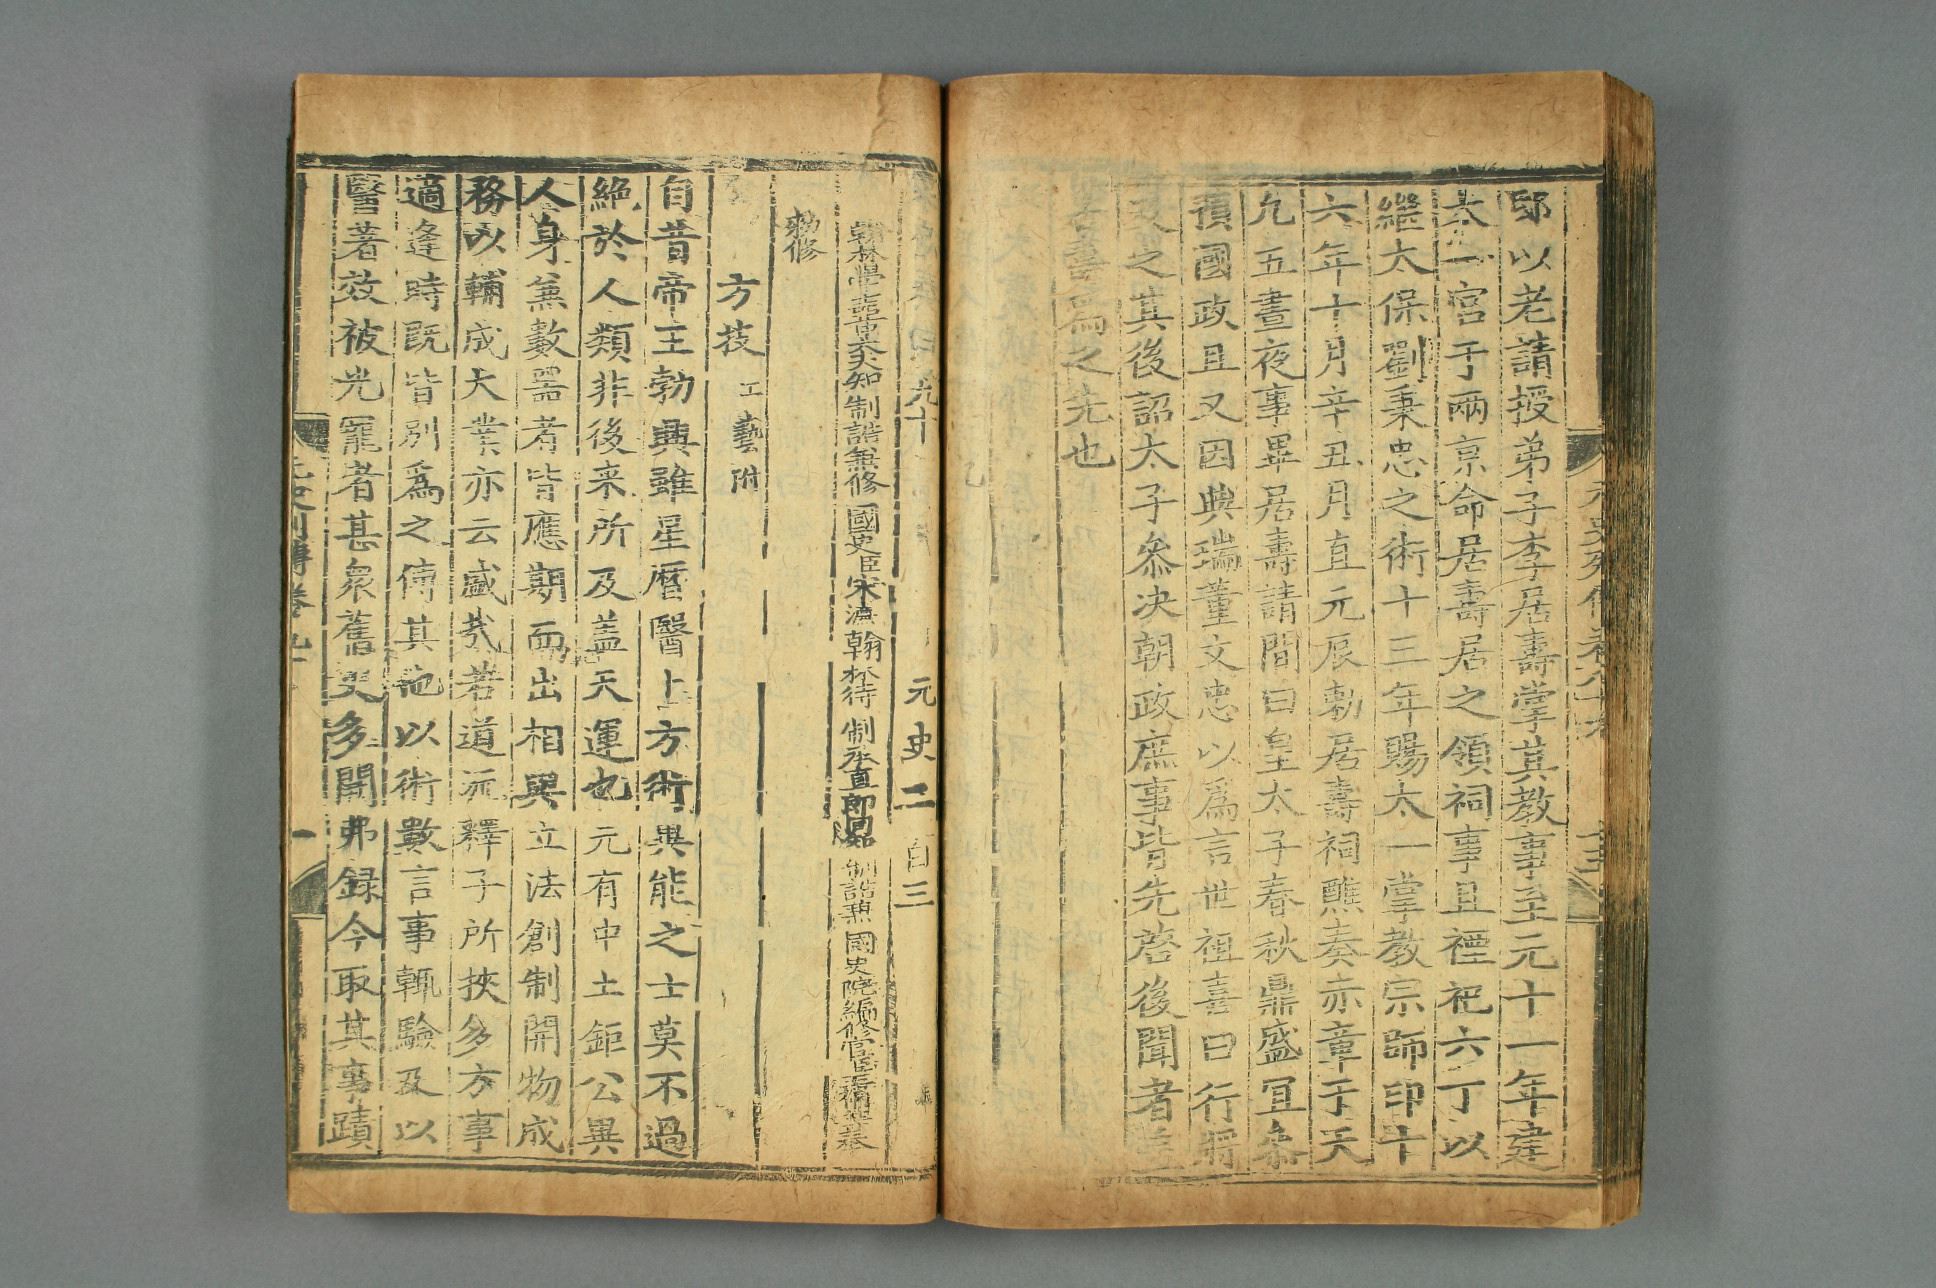 邸以老請授弟子李居壽掌其教事至元十一年建
太一宮于兩京命居壽居之領祠事且禋祀六丁以
繼太保劉秉忠之術十三年賜太一掌教宗師印十
六年十月辛丑月直元辰勅居壽祠醮奏赤章于天
凡五晝夜事畢居壽請間曰皇太子春秋鼎盛宜參
預國政且又因典瑞董文忠以為言世祖喜曰行將
及之其後詔太子參决朝政庶事皆先啓後聞者蓋
居壽為之先也
元史列傳卷
列傳卷九十 元史二百三
翰林學士亞中大夫知制誥兼修國史臣宋濂翰林待制承直郎同知制誥兼國史院編修官臣王禕等奉
勅修
方技 工藝附
自昔帝王勃興雖星曆醫卜方術異能之士莫不過
絕於人類非後来所及蓋天運也元有中土鉅公異
人身兼數器者皆應期而出相與立法創制開物成
務以輔成大業亦云盛哉若道流釋子所挾多方事
適逢時既皆別爲之傳其他以術數言事輒驗及以
醫著效被光寵者甚衆舊史多闕弗録今取其事蹟
元史列傳卷九十 一